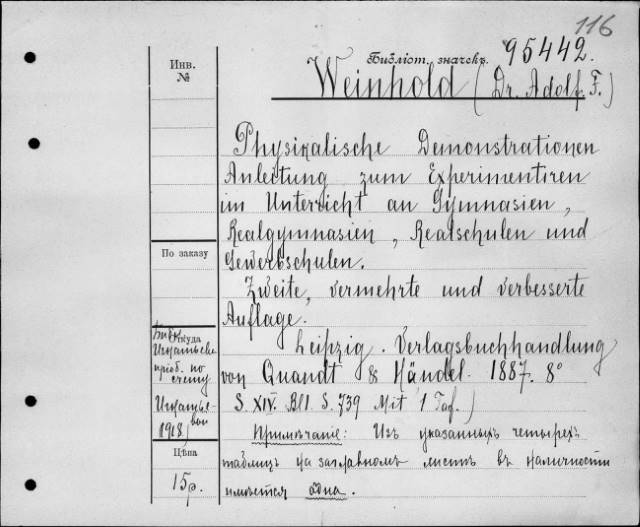 116
Библіот. значекъ. 95442.
Инв.
№
Weinhold (Dr. Adolf. F.)
Physikalische Demonstrationen
Anleitung zum Experimentiren
im Unterricht an Gymnasien,
Realgymnasien, Realschulen und
Gewerbschulen.
По заказу
Zweite, vermehrte und verbesserte
Auflage.
Откуда
Leipzig. Verlagsbuchhandlung
von Quandt & Händel. 1887. 8°
S. XIV. Bll. S. 739 Mit 1 Taf.)
пріоб. по
счету
1918
Примѣчаніе: Изъ указанныхъ четырехъ
Цѣна
таблицъ на заглавномъ листѣ въ наличности
15р.
имѣется одна.